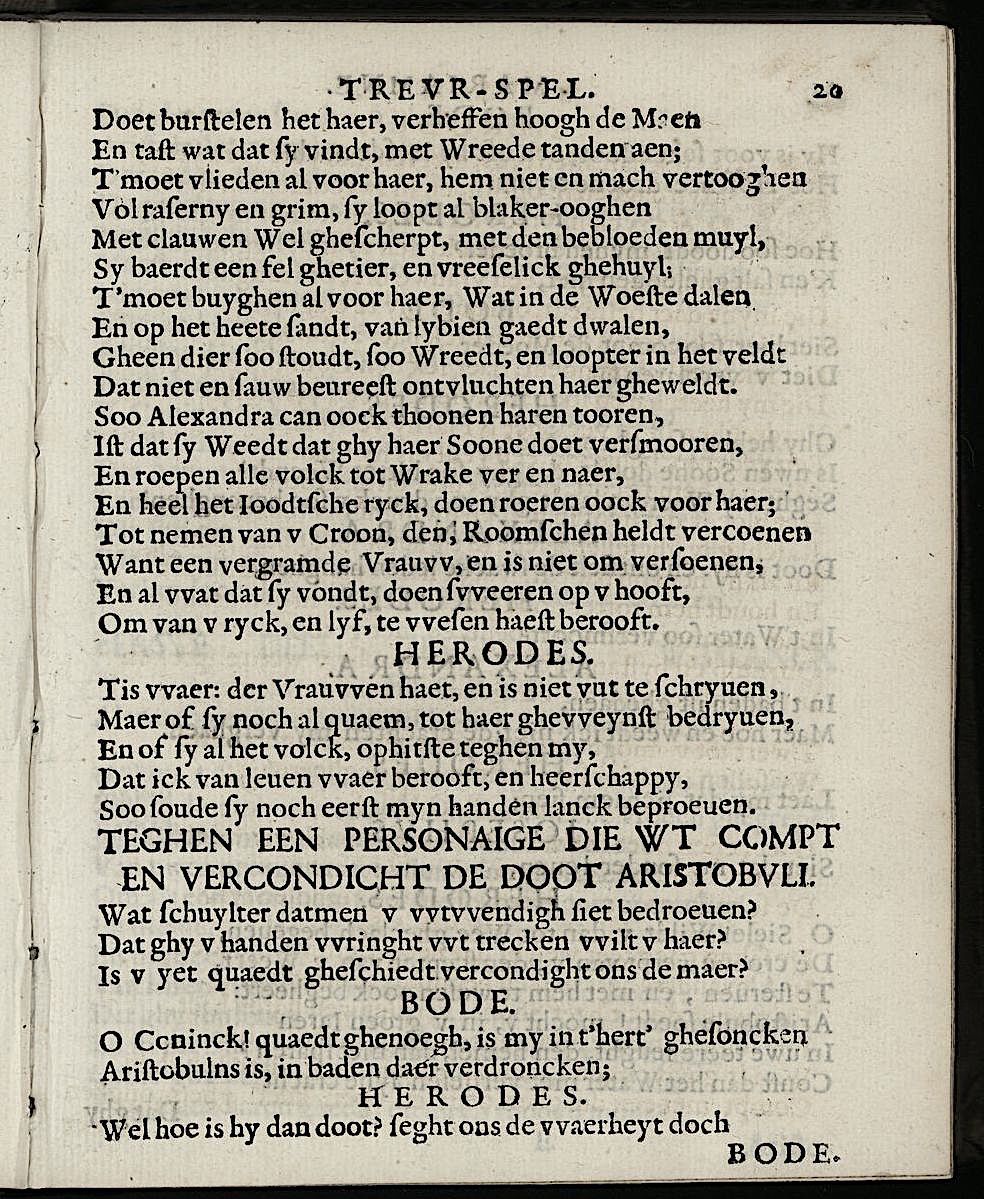 TREVR-SPEL. 20
Doet burſtelen het haer, verheffen hoogh de Maen
En taſt wat dat ſy vindt, met Wreede tanden aen;
T'moet vlieden al voor haer, hem niet en mach vertooghen
Vol raſerny en grim, ſy loopt al blaker-ooghen
Met clauwen Wel gheſcherpt, met den bebloeden muyl,
Sy baerdt een fel ghetier, en vreeſelick ghehuyl;
T'moet buyghen al voor haer, Wat in de Woeſte dalen
En op het heete ſandt, van lybien gaedt dwalen,
Gheen dier ſoo ſtoudt, ſoo Wreedt, en loopter in het veldt
Dat niet en ſauw beureeſt ontvluchten haer gheweldt.
Soo Alexandra can oock thoonen haren tooren,
Iſt dat ſy Weedt dat ghy haer Soone doet verſmooren,
En roepen alle volck tot Wrake ver en naer,
En heel het Ioodtſche ryck, doen roeren oock voor haer;
Tot nemen van v Croon, den, Roomſchen heldt vercoenen
Want een vergramde Vrauvv, en is niet om verſoenen,
En al vvat dat ſy vondt, doen ſvveeren op v hooft,
Om van v ryck, en lyf, te vveſen haeſt berooft.
HERODES.
Tis vvaer: der Vrauvven haet, en is niet vut te ſchryuen,
Maer of ſy noch al quaem, tot haer ghevveynſt bedryuen,
En of ſy al het volck, ophitſte teghen my,
Dat ick van leuen vvaer berooft, en heerſchappy,
Soo ſoude ſy noch eerſt myn handen lanck beproeuen.
TEGHEN EEN PERSONAIGE DIE WT COMPT
EN VERCONDICHT DE DOOT ARISTOBVLI.
Wat ſchuylter datmen v vvtvvendigh ſiet bedroeuen?
Dat ghy v handen vvringht vvt trecken vvilt v haer?
Is v yet quaedt gheſchiedt vercondight ons de maer?
BODE.
O Ccninck! quaedt ghenoegh, is my in t'hert' gheſoncken
Ariſtobulns is, in baden daer verdroncken;
HERODES.
Wel hoe is hy dan doot? ſeght ons de vvaerheyt doch
BODE.